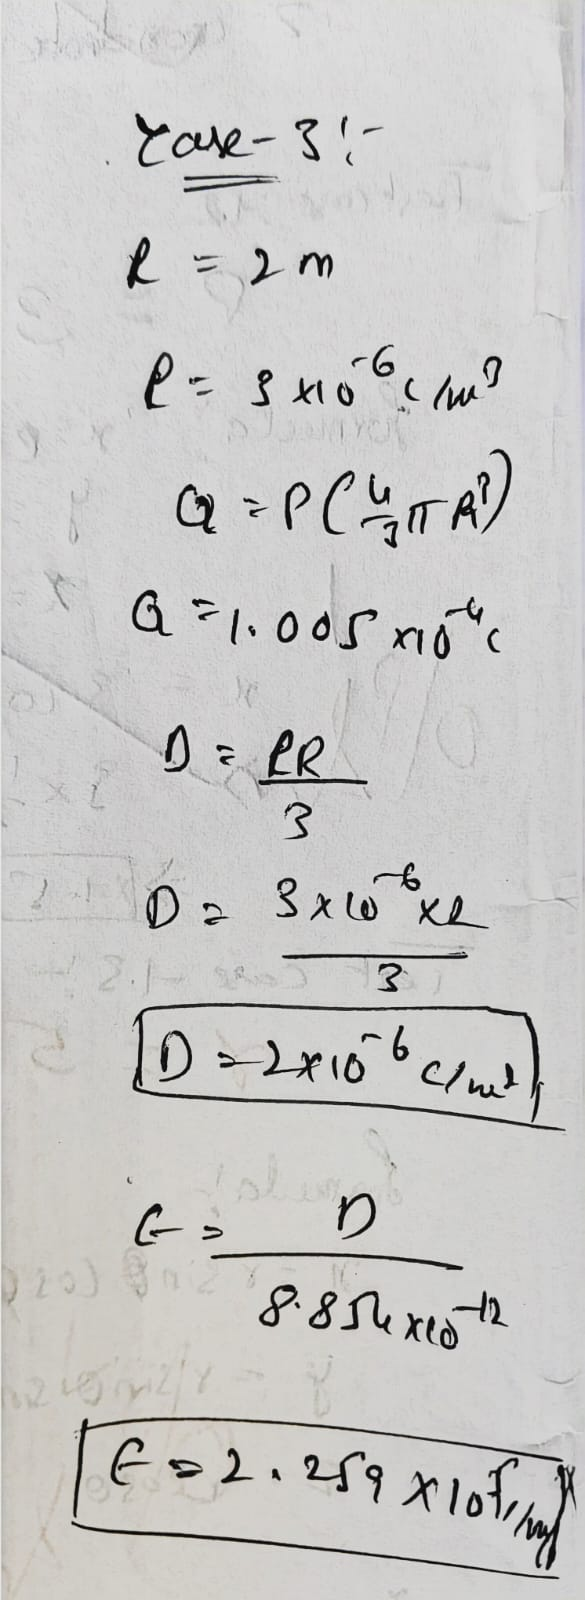 Case-3:-
R = 2 m
ρ = 3 x10^-6 c/m^3
Q = ρ(4/3 π R^3)
Q = 1.005 x10^-4 c
D = ρR/3
D = 3x10^-6 x2/3
D = 2x10^-6 c/m^2
E = D/8.854 x10^-12
E = 2.259 x10^5